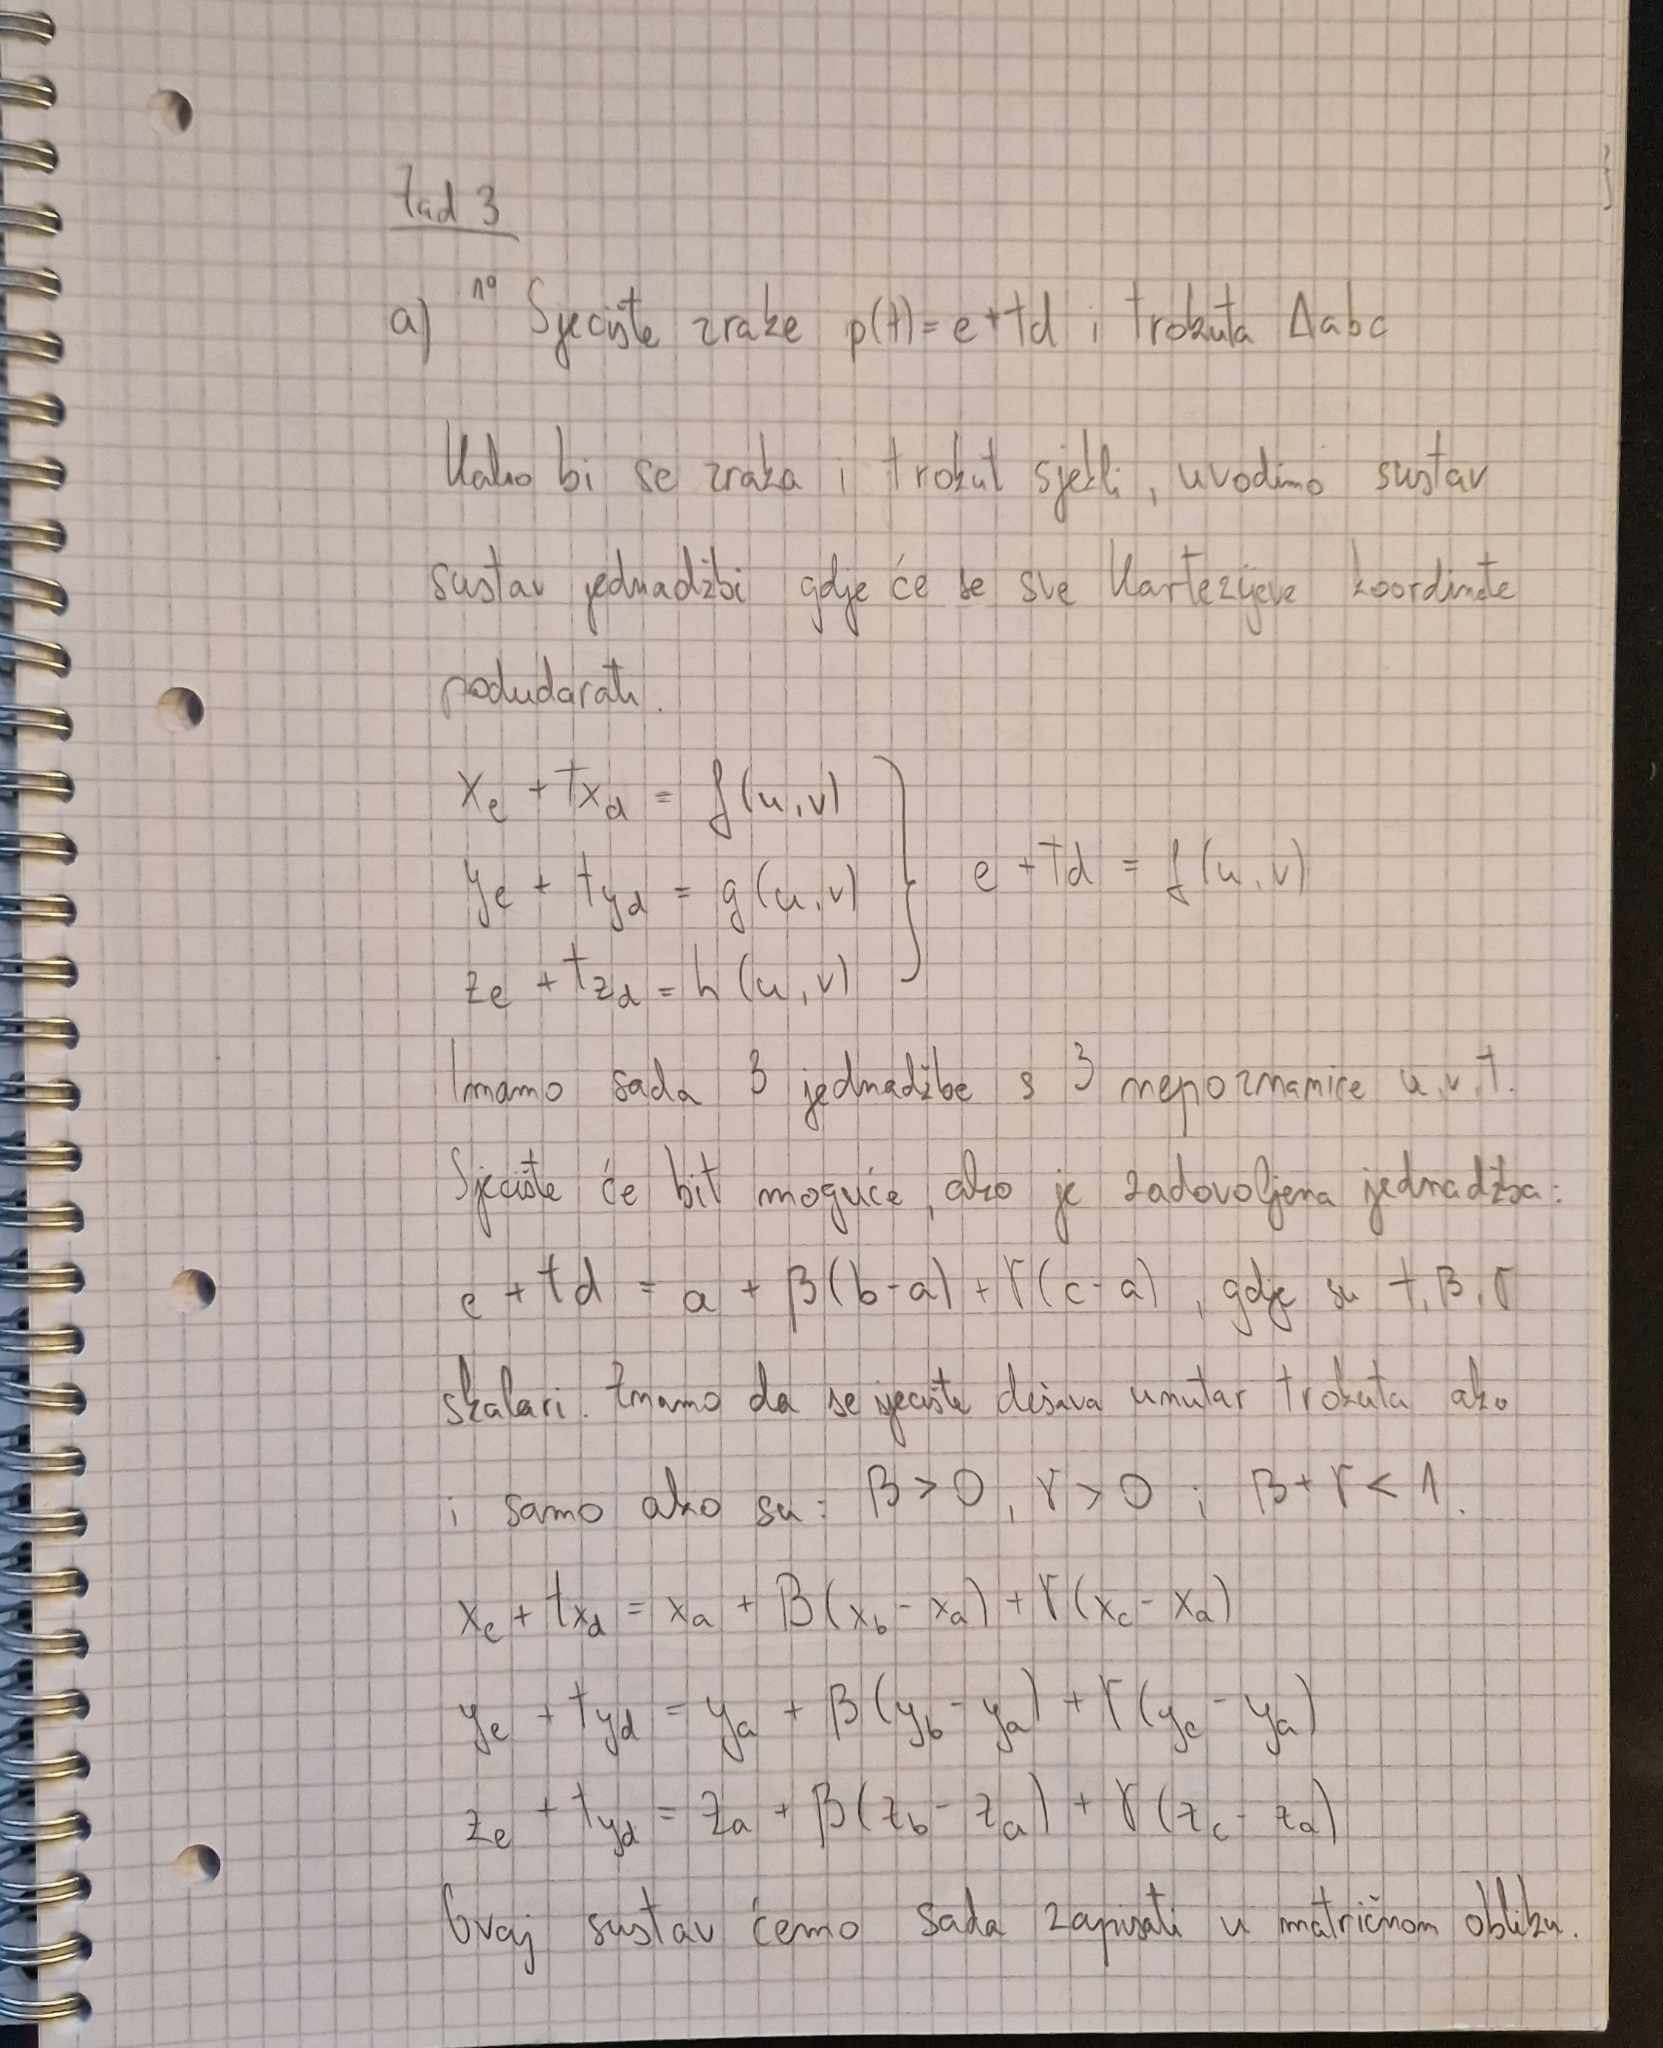 Zad 3
a) 1° Sjecište zrake p(t) = e + td i trokuta Δabc
Kako bi se zraka i trokut sjekli, uvodimo sustav
sustav jednadžbi gdje će se sve Kartezijeve koordinate
podudarati.
x_e + t x_d = f(u, v)
y_e + t y_d = g(u, v) } e + td = f(u, v)
z_e + t z_d = h(u, v)
Imamo sada 3 jednadžbe s 3 nepoznanice u, v, t.
Sjecište će bit moguće, ako je zadovoljena jednadžba:
e + td = a + β(b - a) + γ(c - a), gdje su t, β, γ
skalari. Znamo da se sjecište dešava unutar trokuta ako
i samo ako su: β > 0, γ > 0 i β + γ < 1.
x_e + t x_d = x_a + β(x_b - x_a) + γ(x_c - x_a)
y_e + t y_d = y_a + β(y_b - y_a) + γ(y_c - y_a)
z_e + t y_d = z_a + β(z_b - z_a) + γ(z_c - z_a)
Ovaj sustav ćemo sada zapisati u matričnom obliku.